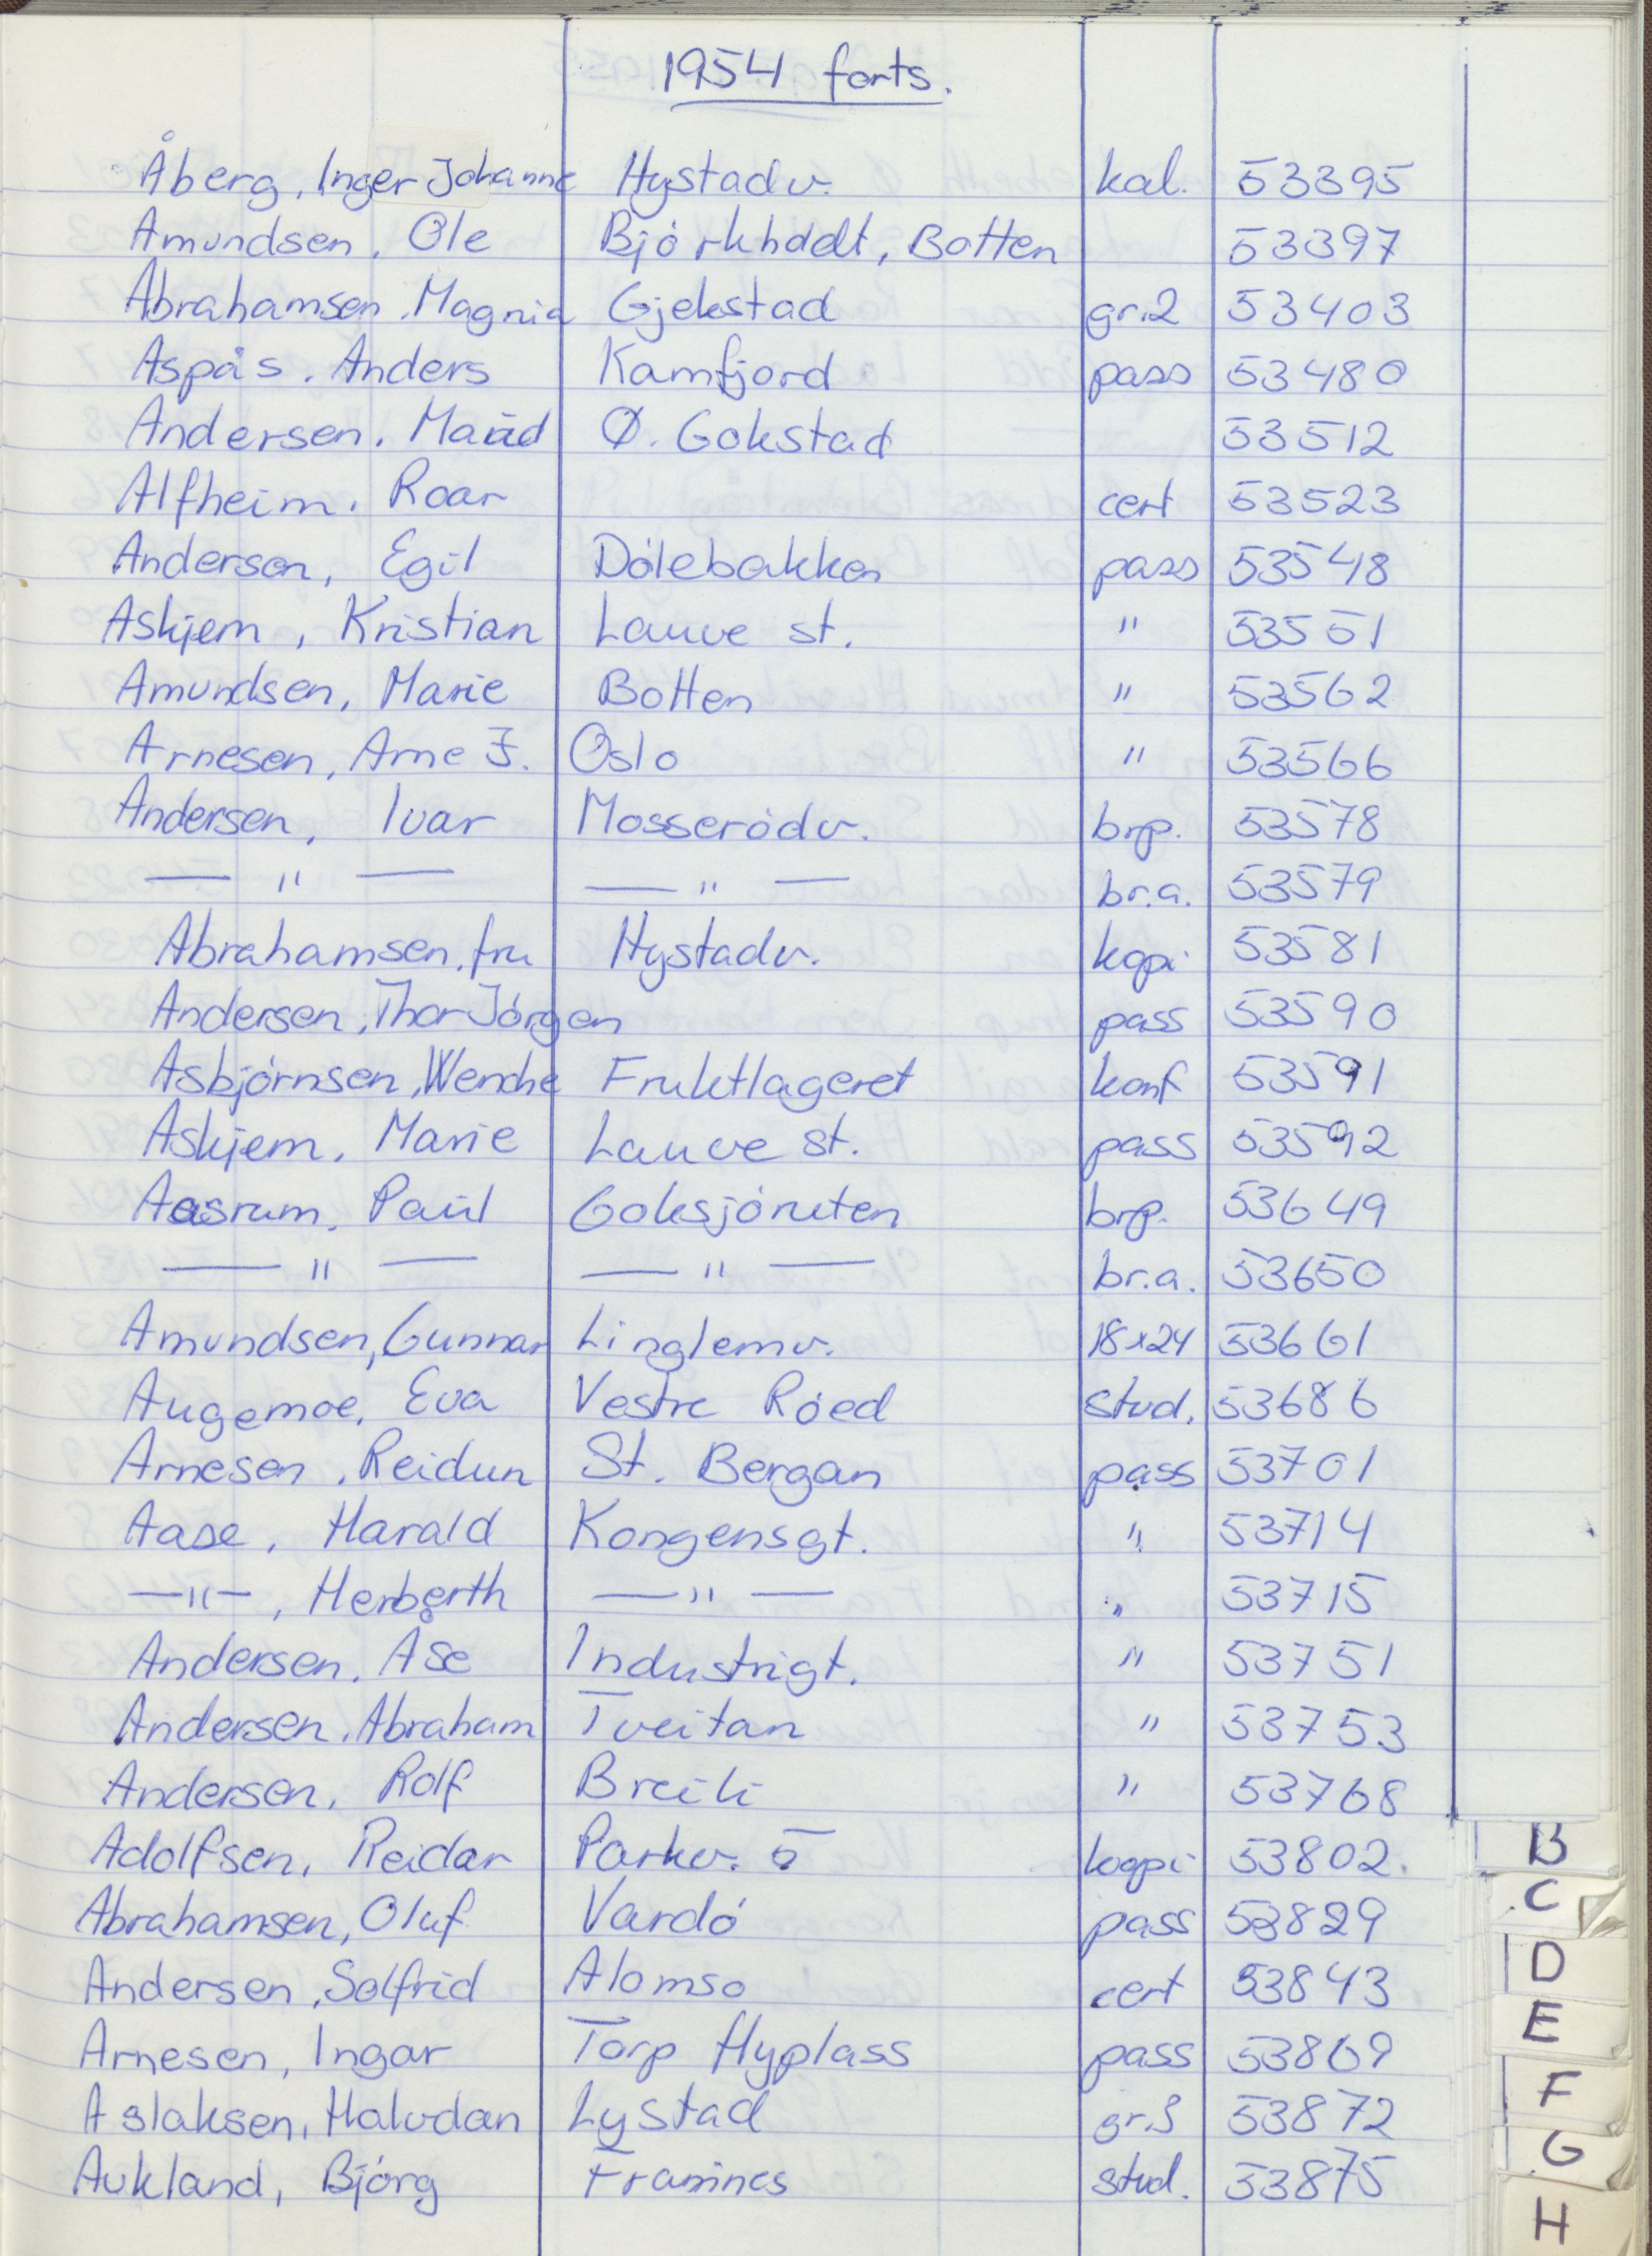 1954 forts.
Åberg, Inger Johanne Hystadv. kal. 53395
Amundsen, Ole Bjórkholdt, Botten 53397
Abrahamsen, Magnia Gjekstad gr.2 53403
Aspås, Anders Kamfjord pass 53480
Andersen, Maud Ø. Gokstad 53512
Alfheim, Roar cert 53523
Andersen, Egil Dólebakken pass 53548
Askjem, Kristian Lauve st. " 53551
Amundsen, Marie Botten " 53562
Arnesen, Arne J. Oslo " 53566
Andersen, Ivar Mosseródv. brp. 53578
— " — — " — br.a. 53579
Abrahamsen, fru Hystadv. kopi 53581
Andersen, Thor Jórgen pass 53590
Asbjórnsen, Wenche Fruktlageret konf 53591
Askjem, Marie Lauve st. pass 53592
Aasrum, Paul Goksjóruten brp. 53649
— " — — " — br.a. 53650
Amundsen, Gunnar Linglemv. 18x24 53661
Augemoe, Eva Vestre Róed stud. 53686
Arnesen, Reidun St. Bergan pass 53701
Aase, Harald Kongensgt. " 53714
— " —, Herberth — " — " 53715
Andersen, Åse Industrigt. " 53751
Andersen, Abraham Tveitan " 53753
Andersen, Rolf Breili " 53768
Adolfsen, Reidar Parkv. 5 kopi 53802.
Abrahamsen, Oluf Vardó pass 53829
Andersen, Solfrid Alomso cert 53843
Arnesen, Ingar Torp Flyplass pass 53869
Aslaksen, Halvdan Lystad gr.S 53872
Aukland, Bjórg Framnes stud. 53875
B
C
D
E
F
G
H